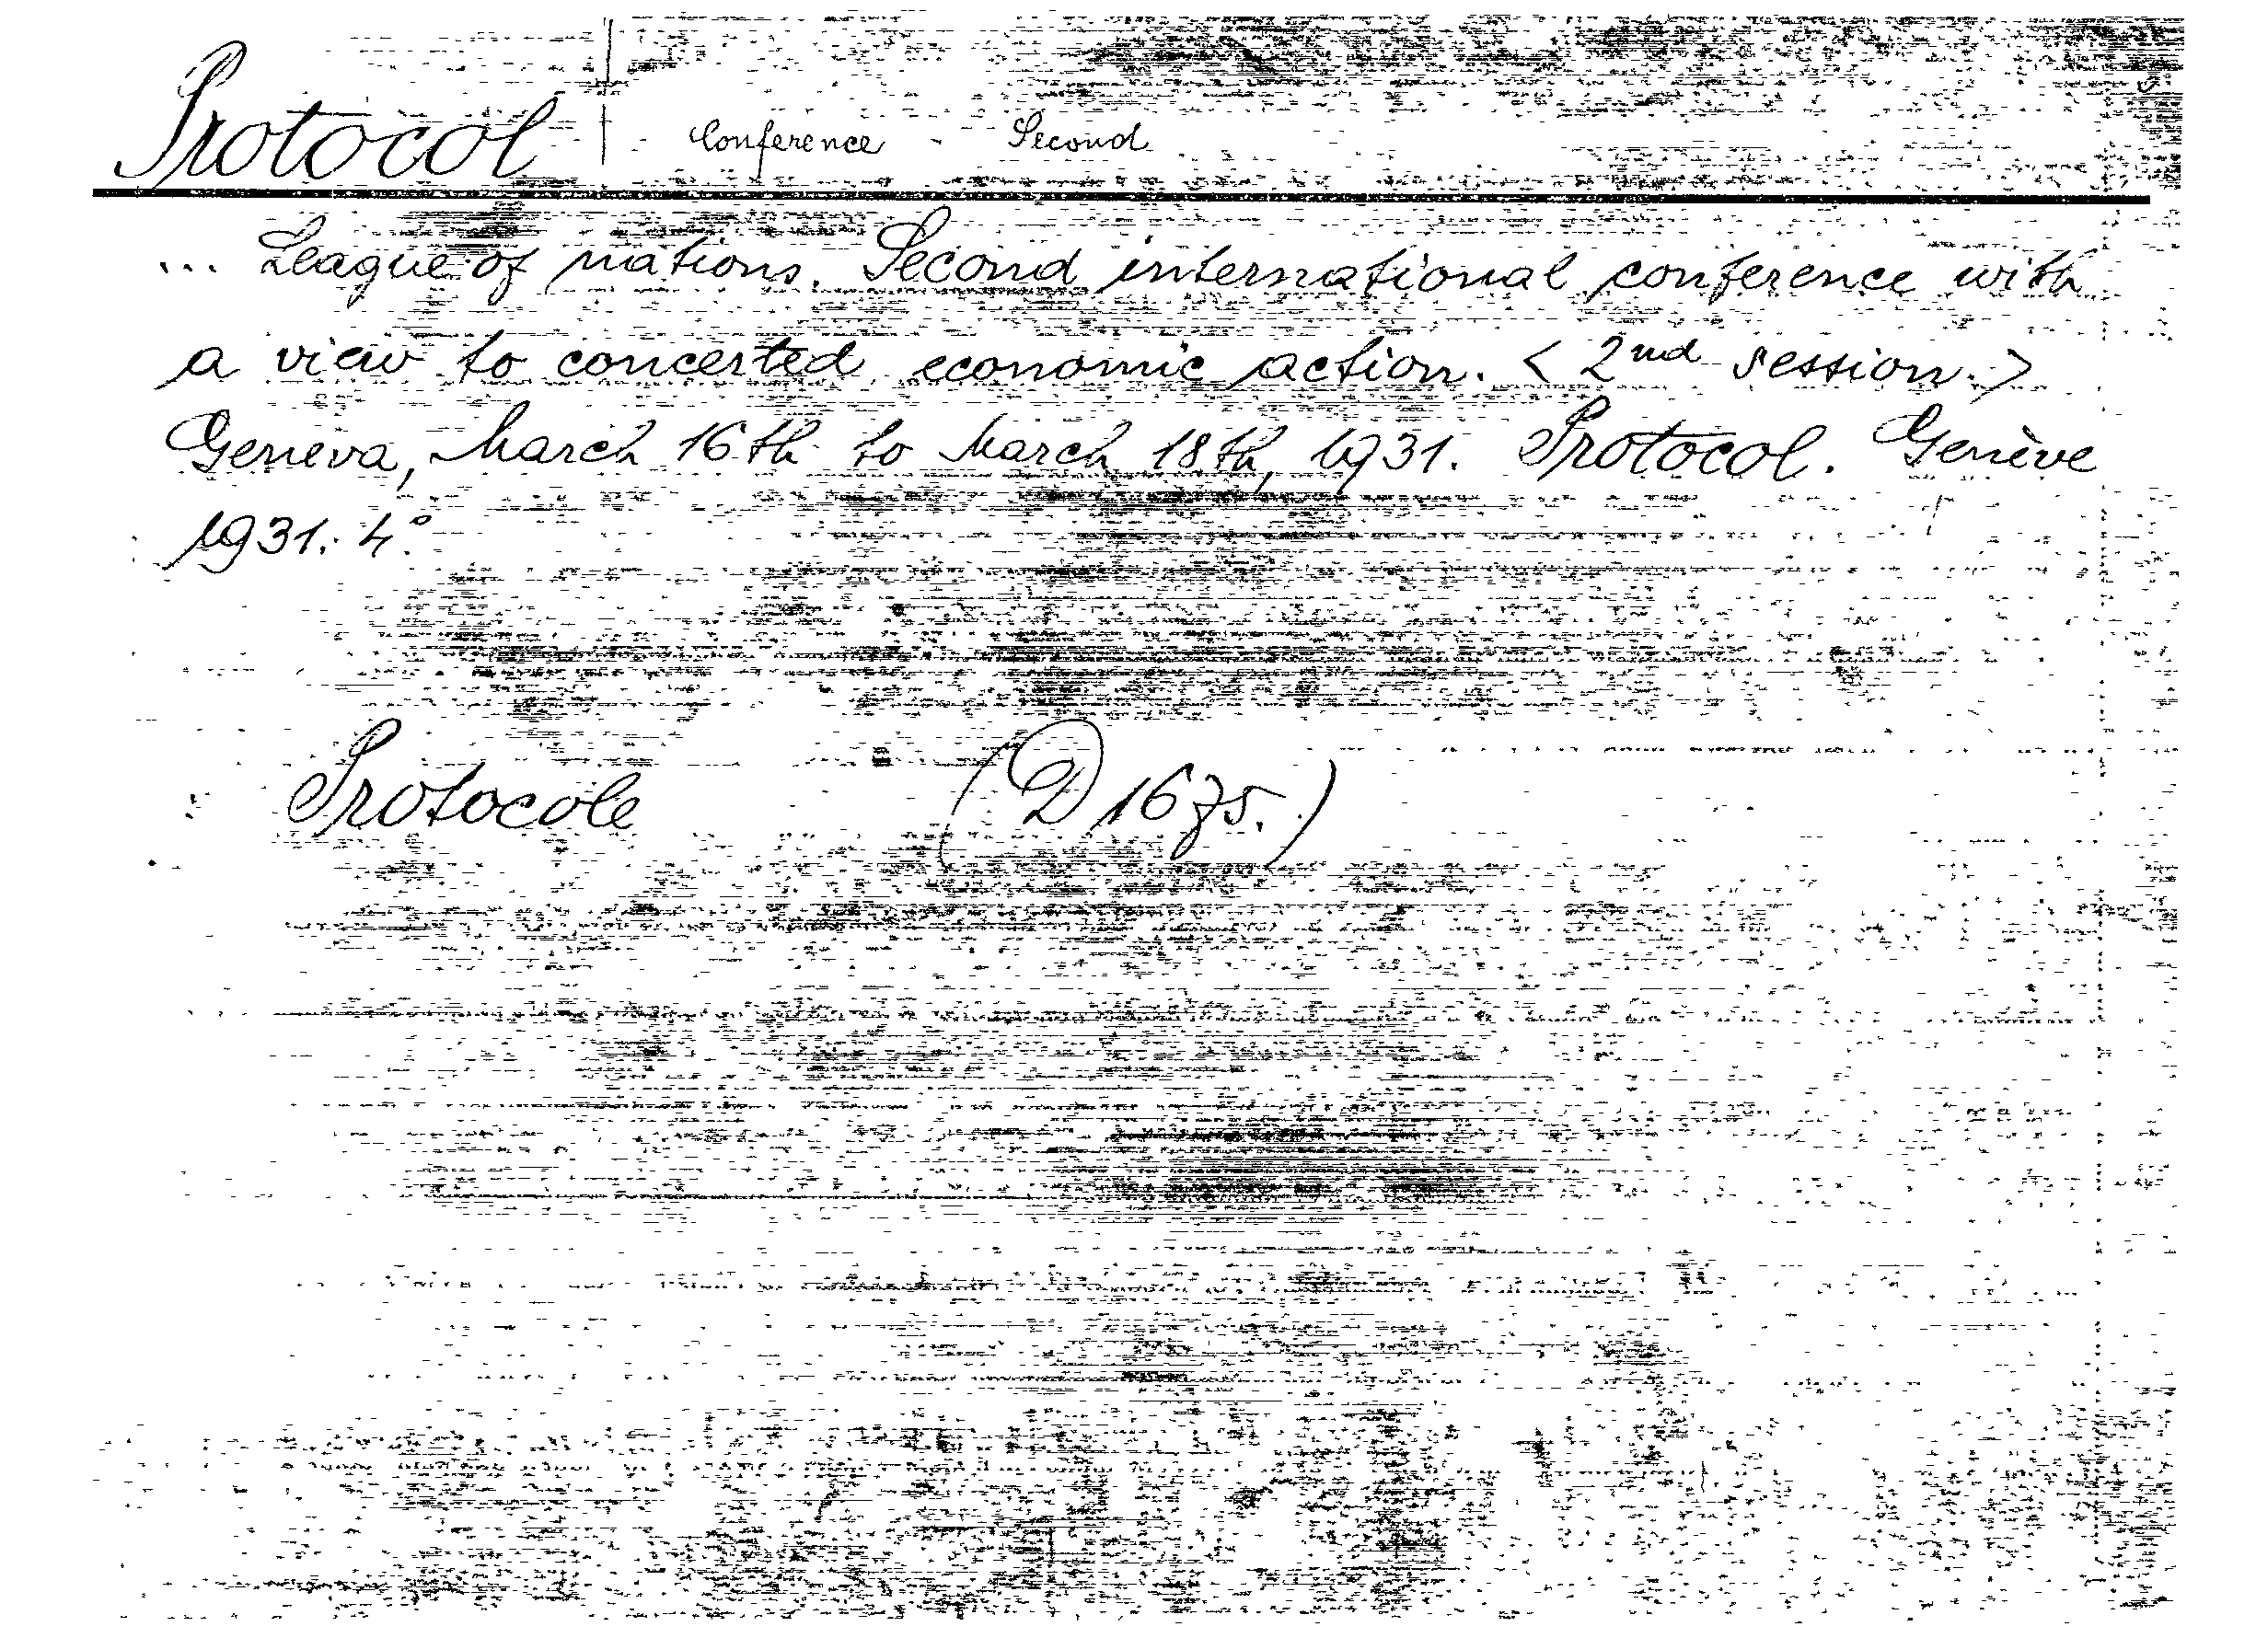 Protocol | Conference - Second
... League of nations. Second international conference with
a view to concerted economic action. < 2nd session. >
Geneva, March 16th to March 18th, 1931. Protocol. Genève
1931. 4°.
Protocole (D 1675.)